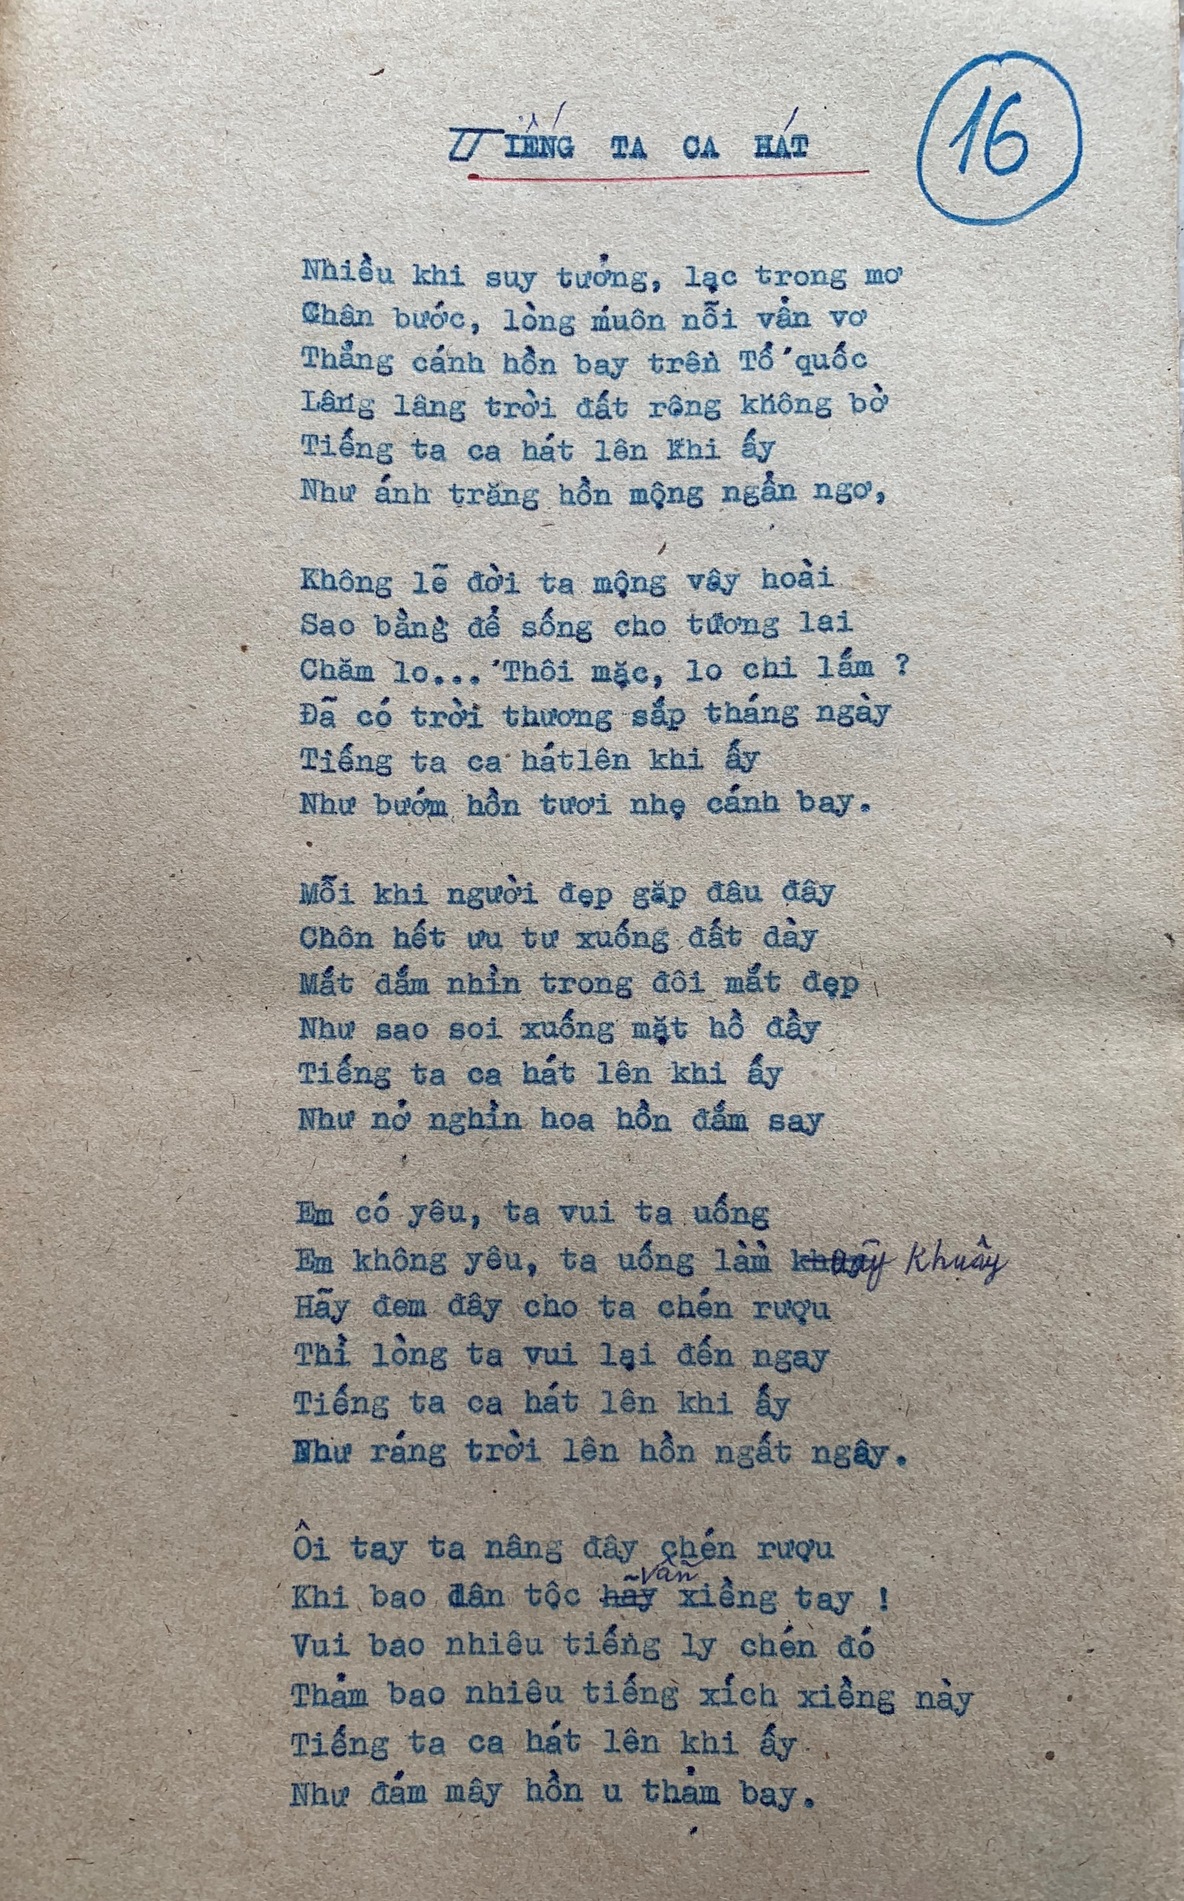 16
TIẾNG TA CA HÁT
Nhiều khi suy tưởng, lạc trong mơ
Chân bước, lòng muôn nỗi vẩn vơ
Thẳng cánh hồn bay trên Tổ quốc
Lâng lâng trời đất rộng không bờ
Tiếng ta ca hát lên khi ấy
Như ánh trăng hồn mộng ngẩn ngơ,
Không lẽ đời ta mộng vậy hoài
Sao bằng để sống cho tương lai
Chăm lo... Thôi mặc, lo chi lắm ?
Đã có trời thương sắp tháng ngày
Tiếng ta ca hát lên khi ấy
Như bướm hồn tươi nhẹ cánh bay.
Mỗi khi người đẹp gặp đâu đây
Chôn hết ưu tư xuống đất dày
Mắt đắm nhìn trong đôi mắt đẹp
Như sao soi xuống mặt hồ đầy
Tiếng ta ca hát lên khi ấy
Như nở nghìn hoa hồn đắm say
Em có yêu, ta vui ta uống
Em không yêu, ta uống làm khuây
Hãy đem đây cho ta chén rượu
Thì lòng ta vui lại đến ngay
Tiếng ta ca hát lên khi ấy
Như ráng trời lên hồn ngất ngây.
Ôi tay ta nâng đây chén rượu
vẫn
Khi bao dân tộc hãy xiềng tay !
Vui bao nhiêu tiếng ly chén đó
Thảm bao nhiêu tiếng xích xiềng này
Tiếng ta ca hát lên khi ấy
Như đám mây hồn u thảm bay.